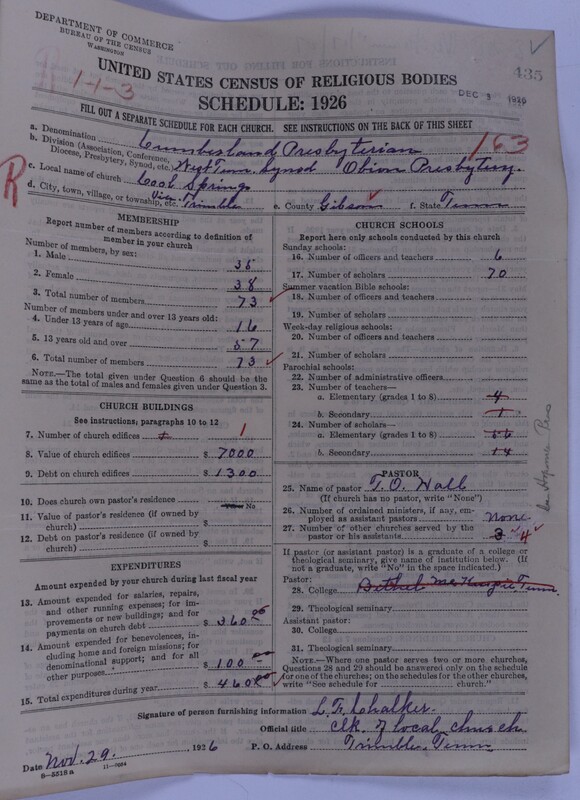 DEPARTMENT OF COMMERCE
BUREAU OF THE CENSUS
WASHINGTON
1-1-3
435
UNITED STATES CENSUS OF RELIGIOUS BODIES
SCHEDULE: 1926
DEC 3 1926
FILL OUT A SEPARATE SCHEDULE FOR EACH CHURCH. SEE INSTRUCTIONS ON THE BACK OF THIS SHEET
163
a. Denomination Cumberland Presbyterian
b. Division (Association, Conference, Diocese, Presbytery, Synod, etc.) West Tenn. Synod Obion Presbytery.
R
c. Local name of church Cool Springs
d. City, town, village, or township, etc. Trimble e. County Gibson f. State Tenn
MEMBERSHIP
Report number of members according to definition of member in your church
Number of members, by sex:
1. Male 35
2. Female 38
3. Total number of members 73
Number of members under and over 13 years old:
4. Under 13 years of age 16
5. 13 years old and over 57
6. Total number of members 73
NOTE.—The total given under Question 6 should be the same as the total of males and females given under Question 3.
CHURCH BUILDINGS
See instructions; paragraphs 10 to 12
7. Number of church edifices 1
8. Value of church edifices $ 7000
9. Debt on church edifices $ 1300
10. Does church own pastor's residence No
11. Value of pastor's residence (if owned by church) $
12. Debt on pastor's residence (if owned by church) $
EXPENDITURES
Amount expended by your church during last fiscal year
13. Amount expended for salaries, repairs, and other running expenses; for improvements or new buildings; and for payments on church debt $ 360.00
14. Amount expended for benevolences, including home and foreign missions; for denominational support; and for all other purposes $ 100.00
15. Total expenditures during year $ 460.00
CHURCH SCHOOLS
Report here only schools conducted by this church
Sunday schools:
16. Number of officers and teachers 6
17. Number of scholars 70
Summer vacation Bible schools:
18. Number of officers and teachers
19. Number of scholars
Week-day religious schools:
20. Number of officers and teachers
21. Number of scholars
Parochial schools:
22. Number of administrative officers
23. Number of teachers—
a. Elementary (grades 1 to 8) 4
b. Secondary 1
24. Number of scholars—
a. Elementary (grades 1 to 8)
b. Secondary 14
PASTOR
25. Name of pastor T. O. Hall
(If church has no pastor, write "None")
26. Number of ordained ministers, if any, employed as assistant pastors none
27. Number of other churches served by the pastor or his assistants 3 4
If pastor (or assistant pastor) is a graduate of a college or theological seminary, give name of institution below. (If not a graduate, write "No" in the space indicated.)
Pastor:
28. College Bethel McKenzie Tenn.
29. Theological seminary
Assistant pastor:
30. College
31. Theological seminary
NOTE.—Where one pastor serves two or more churches, Questions 28 and 29 should be answered only on the schedule for one of the churches; on the schedules for the other churches, write "See schedule for church."
Signature of person furnishing information L. F. Chalker.
Official title clk. of local church
Date Nov. 29. 1926 P. O. Address Trimble, Tenn
8-5518a 11-7094